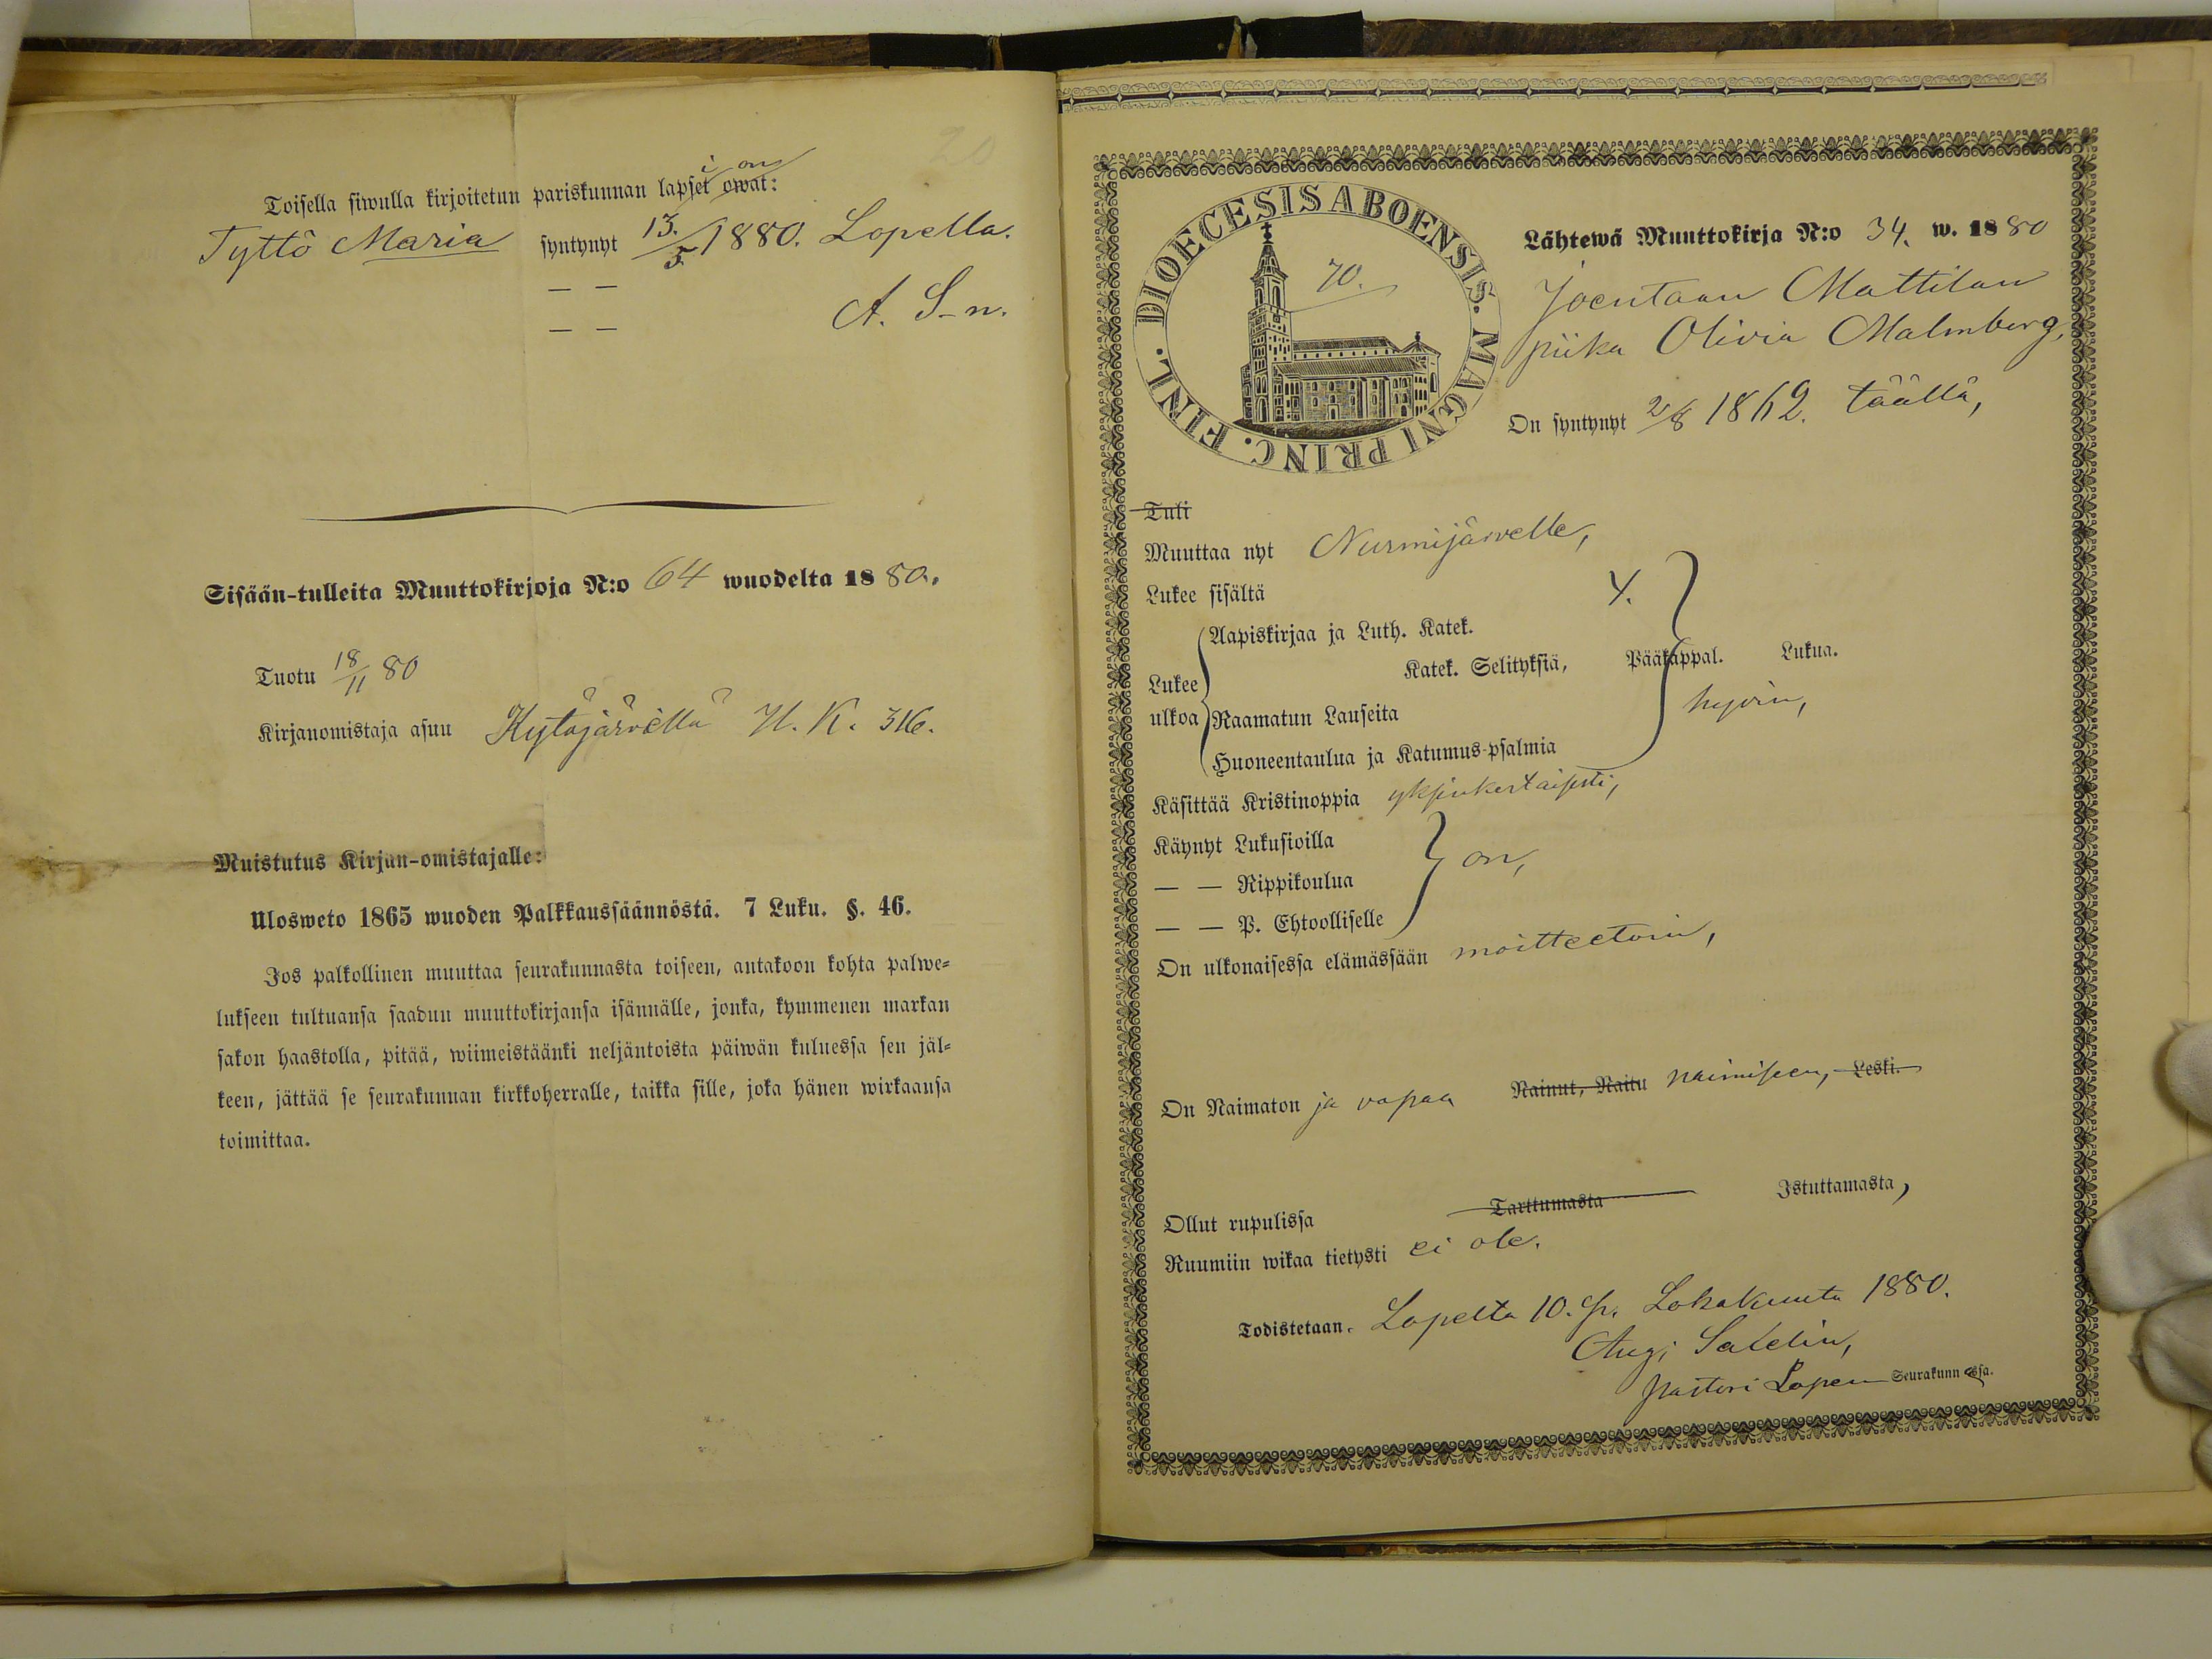 20
i on
Toisella siwulla kirjoitetun pariskunnan lapset owat:
Tyttö Maria syntynyt 13/5 1880. Lopella.
— —
— — A. S-n.
Sisään-tulleita Muuttokirjoja N:o 64 wuodelta 1880.
Tuotu 18/11 80
Kirjanomistaja asuu Kytäjärvellä H. K. 316.
Muistutus Kirjan-omistajalle:
Ulosweto 1865 wuoden Palkkaussäännöstä. 7 Luku. §. 46.
Jos palkollinen muuttaa seurakunnasta toiseen, antakoon kohta palwe-
lukseen tultuansa saadun muuttokirjansa isännälle, jonka, kymmenen markan
sakon haastolla, pitää, wiimeistäänki neljäntoista päiwän kuluessa sen jäl-
keen, jättää se seurakunnan kirkkoherralle, taikka sille, joka hänen wirkaansa
toimittaa.
DIOECESIS ABOENSIS. MAGNI PRINC. FINL.
70.
Lähtewä Muuttokirja N:o 34. w. 1880
Joentaan Mattilan
piika Olivia Malmberg,
On syntynyt 2/8 1862. täällä,
Tuli
Muuttaa nyt Nurmijärvelle,
Lukee sisältä Y.
Aapiskirjaa ja Luth. Katek.
Lukee Katek. Selityksiä, Pääkappal. Lukua.
ulkoa Raamatun Lauseita hyvin,
Huoneentaulua ja Katumus-psalmia
Käsittää Kristinoppia yksinkertaisesti,
Käynyt Lukusioilla
— — Rippikoulua on,
— — P. Ehtoolliselle
On ulkonaisessa elämässään moitteetoin,
On Naimaton ja vapaa Nainut, Naitu naimiseen, Leski.
Ollut rupulissa Tarttumasta Istuttamasta,
Ruumiin wikaa tietysti ei ole.
Todistetaan. Lopelta 10. p. Lokakuuta 1880.
Aug. Salelin,
pastori Lopen Seurakunnassa.